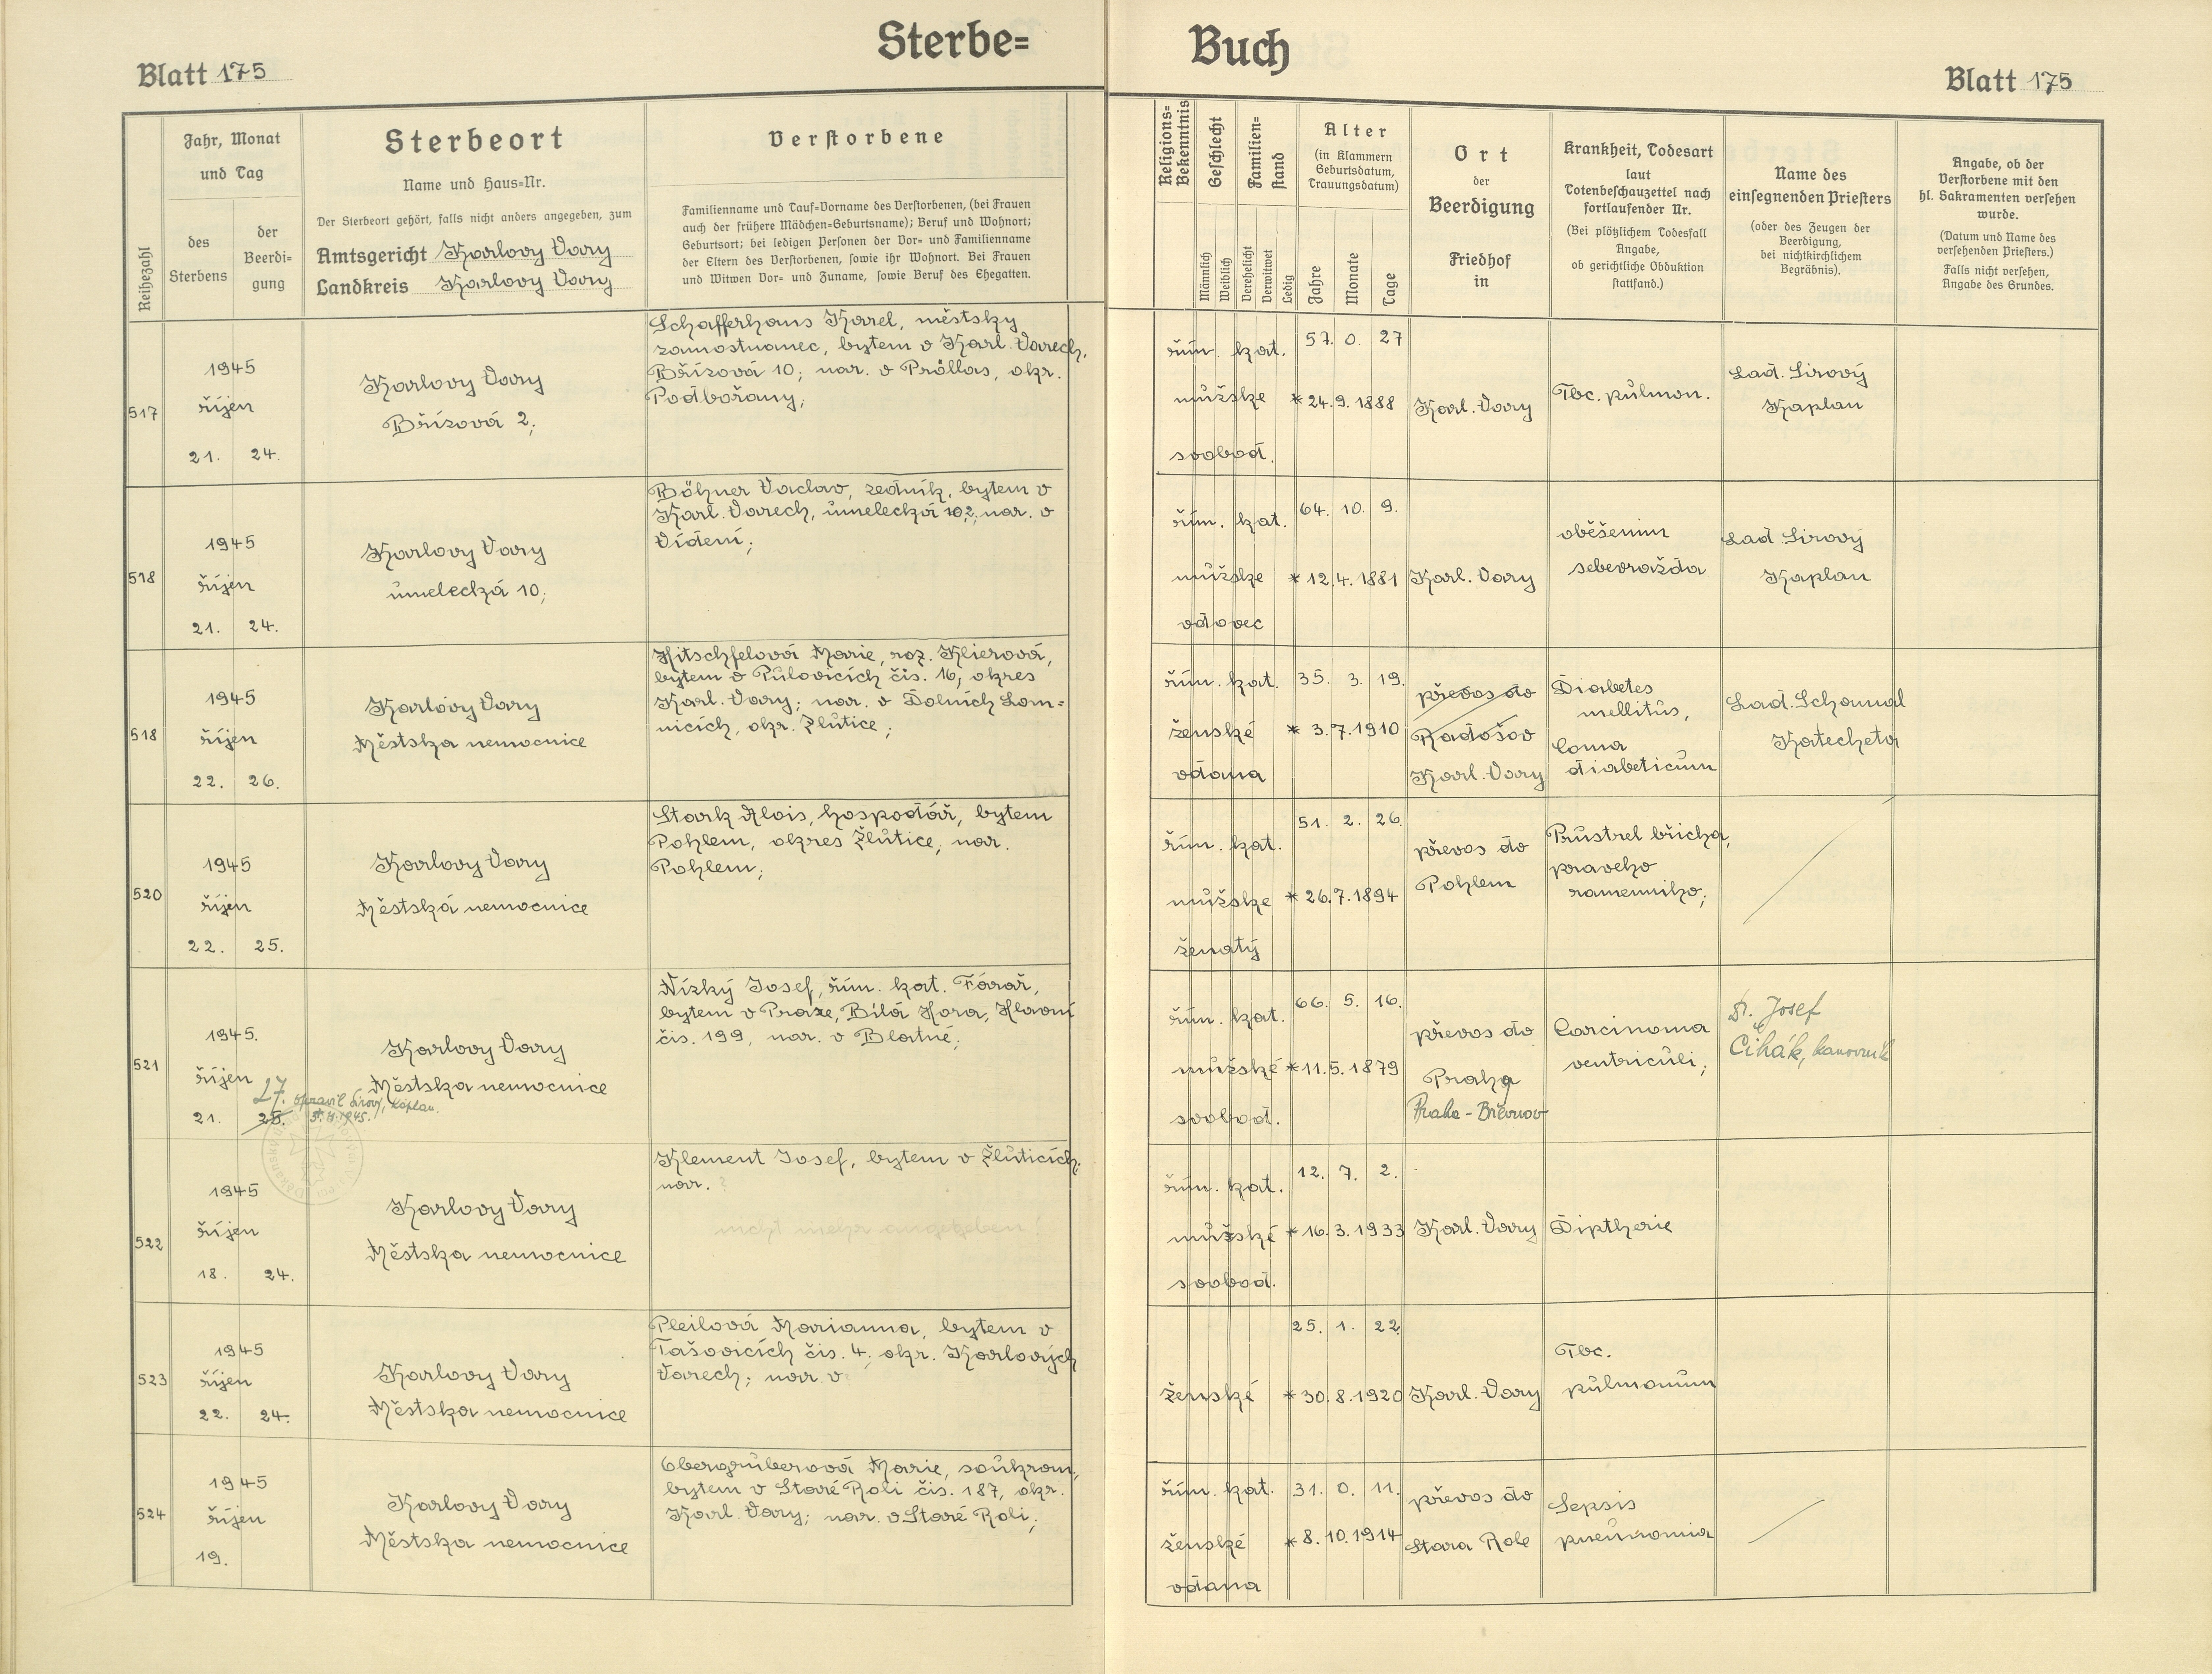 Sterbe=
Buch
Blatt 175
Blatt 175
Reihezahl
Jahr, Monat
und Tag
des
Sterbens
der
Beerdi=
gung
Sterbeort
Name und Haus=Nr.
Der Sterbeort gehört, falls nicht anders angegeben, zum
Amtsgericht Karlovy Vary
Landkreis Karlovy Vary
Verstorbene
Familienname und Tauf=Vorname des Verstorbenen, (bei Frauen
auch der frühere Mädchen=Geburtsname); Beruf und Wohnort;
Geburtsort; bei ledigen Personen der Vor= und Familienname
der Eltern des Verstorbenen, sowie ihr Wohnort. Bei Frauen
und Witwen Vor= und Zuname, sowie Beruf des Ehegatten.
Religions=
Bekenntnis
Geschlecht
Männlich
Weiblich
Familien=
stand
Verehelicht
Verwitwet
Ledig
Alter
(in Klammern
Geburtsdatum,
Trauungsdatum)
Jahre
Monate
Tage
Ort
der
Beerdigung
Friedhof
in
Krankheit, Todesart
laut
Totenbeschauzettel nach
fortlaufender Nr.
(Bei plötzlichem Todesfall
Angabe,
ob gerichtliche Obduktion
stattfand.)
Name des
einsegnenden Priesters
(oder des Zeugen der
Beerdigung,
bei nichtkirchlichem
Begräbnis).
Angabe, ob der
Verstorbene mit den
hl. Sakramenten versehen
wurde.
(Datum und Name des
versehenden Priesters.)
Falls nicht versehen,
Angabe des Grundes.
517
1945
říjen
21. 24.
Karlovy Vary
Břízová 2;
Schafferhans Karel, městsky
zamostnanec, bytem v Karl. Varech,
Břízová 10; nar. v Pröllas, okr.
Podbořany;
řím. kat.
mužske
svobod.
57. 0. 27
* 24. 9. 1888
Karl. Vary
Tbc. pulmon.
Lad. Sirový
Kaplan
518
1945
říjen
21. 24.
Karlovy Vary
umelecká 10;
Böhner Vaclav, zedník, bytem v
Karl. Varech, umelecká 10; nar. v
Vídeni;
řím. kat.
mužske
vdovec
64. 10. 9.
* 12. 4. 1881
Karl. Vary
oběšenim
sebevražda
Lad Sirový
Kaplan
518
1945
říjen
22. 26.
Karlovy Vary
Městska nemocnice
Hitschfelová Marie, roz. Klierová,
bytem v Pulovicích čis. 16, okres
Karl. Vary; nar. v Dolních Lom=
nicích, okr. Žlutice;
řím. kat.
ženské
vdana
35. 3. 19.
* 3. 7. 1910
převos do
Radošov
Karl. Vary
Diabetes
mellitus,
Coma
diabeticum
Lad. Schamal
Katecheta
520
1945
říjen
22. 25.
Karlovy Vary
Městská nemocnice
Stark Alois, hospodář, bytem
Pohlem, okres Žlutice; nar.
Pohlem;
řím. kat.
mužske
ženatý
51. 2. 26.
* 26. 7. 1894
převos do
Pohlem
Prustrel břicha,
praveho
ramenniho;
521
1945.
říjen
21. 25.
27. opravil Sirový, kaplan.
Karlovy Vary
Městska nemocnice
Nízký Josef, řím. kat. Fárař,
bytem v Praze, Bílá Hora, Hlavní
čis. 199, nar. v Blatné;
řím. kat.
mužské
svobod.
66. 5. 16.
* 11. 5. 1879
převos do
Praha
Praha - Břevnov
Carcinoma
ventriculi;
Dr. Josef
Čihák, kanovník
522
1945
říjen
18. 24.
Karlovy Vary
Městska nemocnice
Klement Josef, bytem v Žluticích;
nar. ?
nicht mehr angegeben!
řím. kat.
mužské
svobod.
12. 7. 2.
* 16. 3. 1933
Karl. Vary
Diptherie
523
1945
říjen
22. 24.
Karlovy Vary
Městska nemocnice
Pleilová Marianna, bytem v
Tašovicích čis. 4, okr. Karlových
Varech; nar. v
ženské
25. 1. 22.
* 30. 8. 1920
Karl. Vary
Tbc.
pulmonum
524
1945
říjen
19.
Karlovy Vary
Městska nemocnice
Obergruberová Marie, soukrom;
bytem v Staré Roli čis. 187, okr.
Karl. Vary; nar. v Staré Roli;
řím. kat.
ženské
vdana
31. 0. 11.
* 8. 10. 1914
převos do
Stara Role
Sepsis
pneuromia